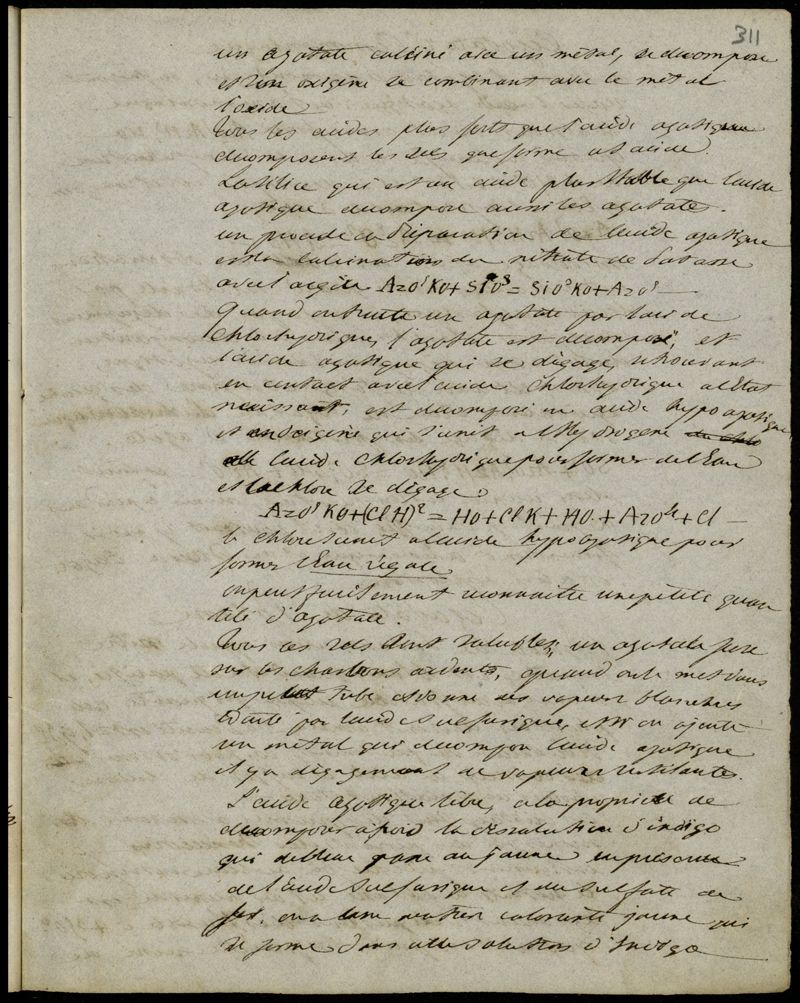 311
un azotate calciné avec un métal, se decompose
et son oxigène se combinant avec le métal
l'oxide
Tous les acides plus forts que l'acide azotique
decomposent les sels que forme cet acide.
La silice qui est un acide plus stable que l'acide
azotique decompose aussi les azotate.
un procede de preparation de l'acide azotique
est la calcination du nitrate de potasse
avec l'argile AzO⁵KO + SiO³ = SiO³KO + AzO⁵
Quand on traite un azotate par l'acide
chlorhydrique, l'azotate est decomposé, et
l'acide azotique qui se dégage, se trouvant
en contact avec l'acide chlorhydrique à l'Etat
naissant, est decomposé en acide hypoazotique
et en oxigène qui s'unit à l'Hydrogene
de l'acide chlorhydrique pour former de l'Eau
et le chlore se dégage.
AzO⁵KO+(ClH)² = HO + ClK + HO. + AzO⁴ + Cl
le chlore s'unit à l'acide hypoazotique pour
former l'Eau régale
on peut facilement reconnaitre une petite quan
tité d'azotate.
Tous ces sels sont solubles, un azotate fuse
sur les charbons ardents, quand on le met dans
un petit tube et donne des vapeurs blanches
traité par l'acide sulfurique, et si on ajoute
un métal qui decompose l'acide azotique
il y a dégagement de vapeurs rutilantes.
L'acide azotique libre, a la propriété de
decomposer à froid la dissolution d'indigo
qui de bleu passe au jaune en présence
de l'acide sulfurique et du sulfate de
fer. on a une matière colorante jaune qui
se forme dans cette solution d'Indigo